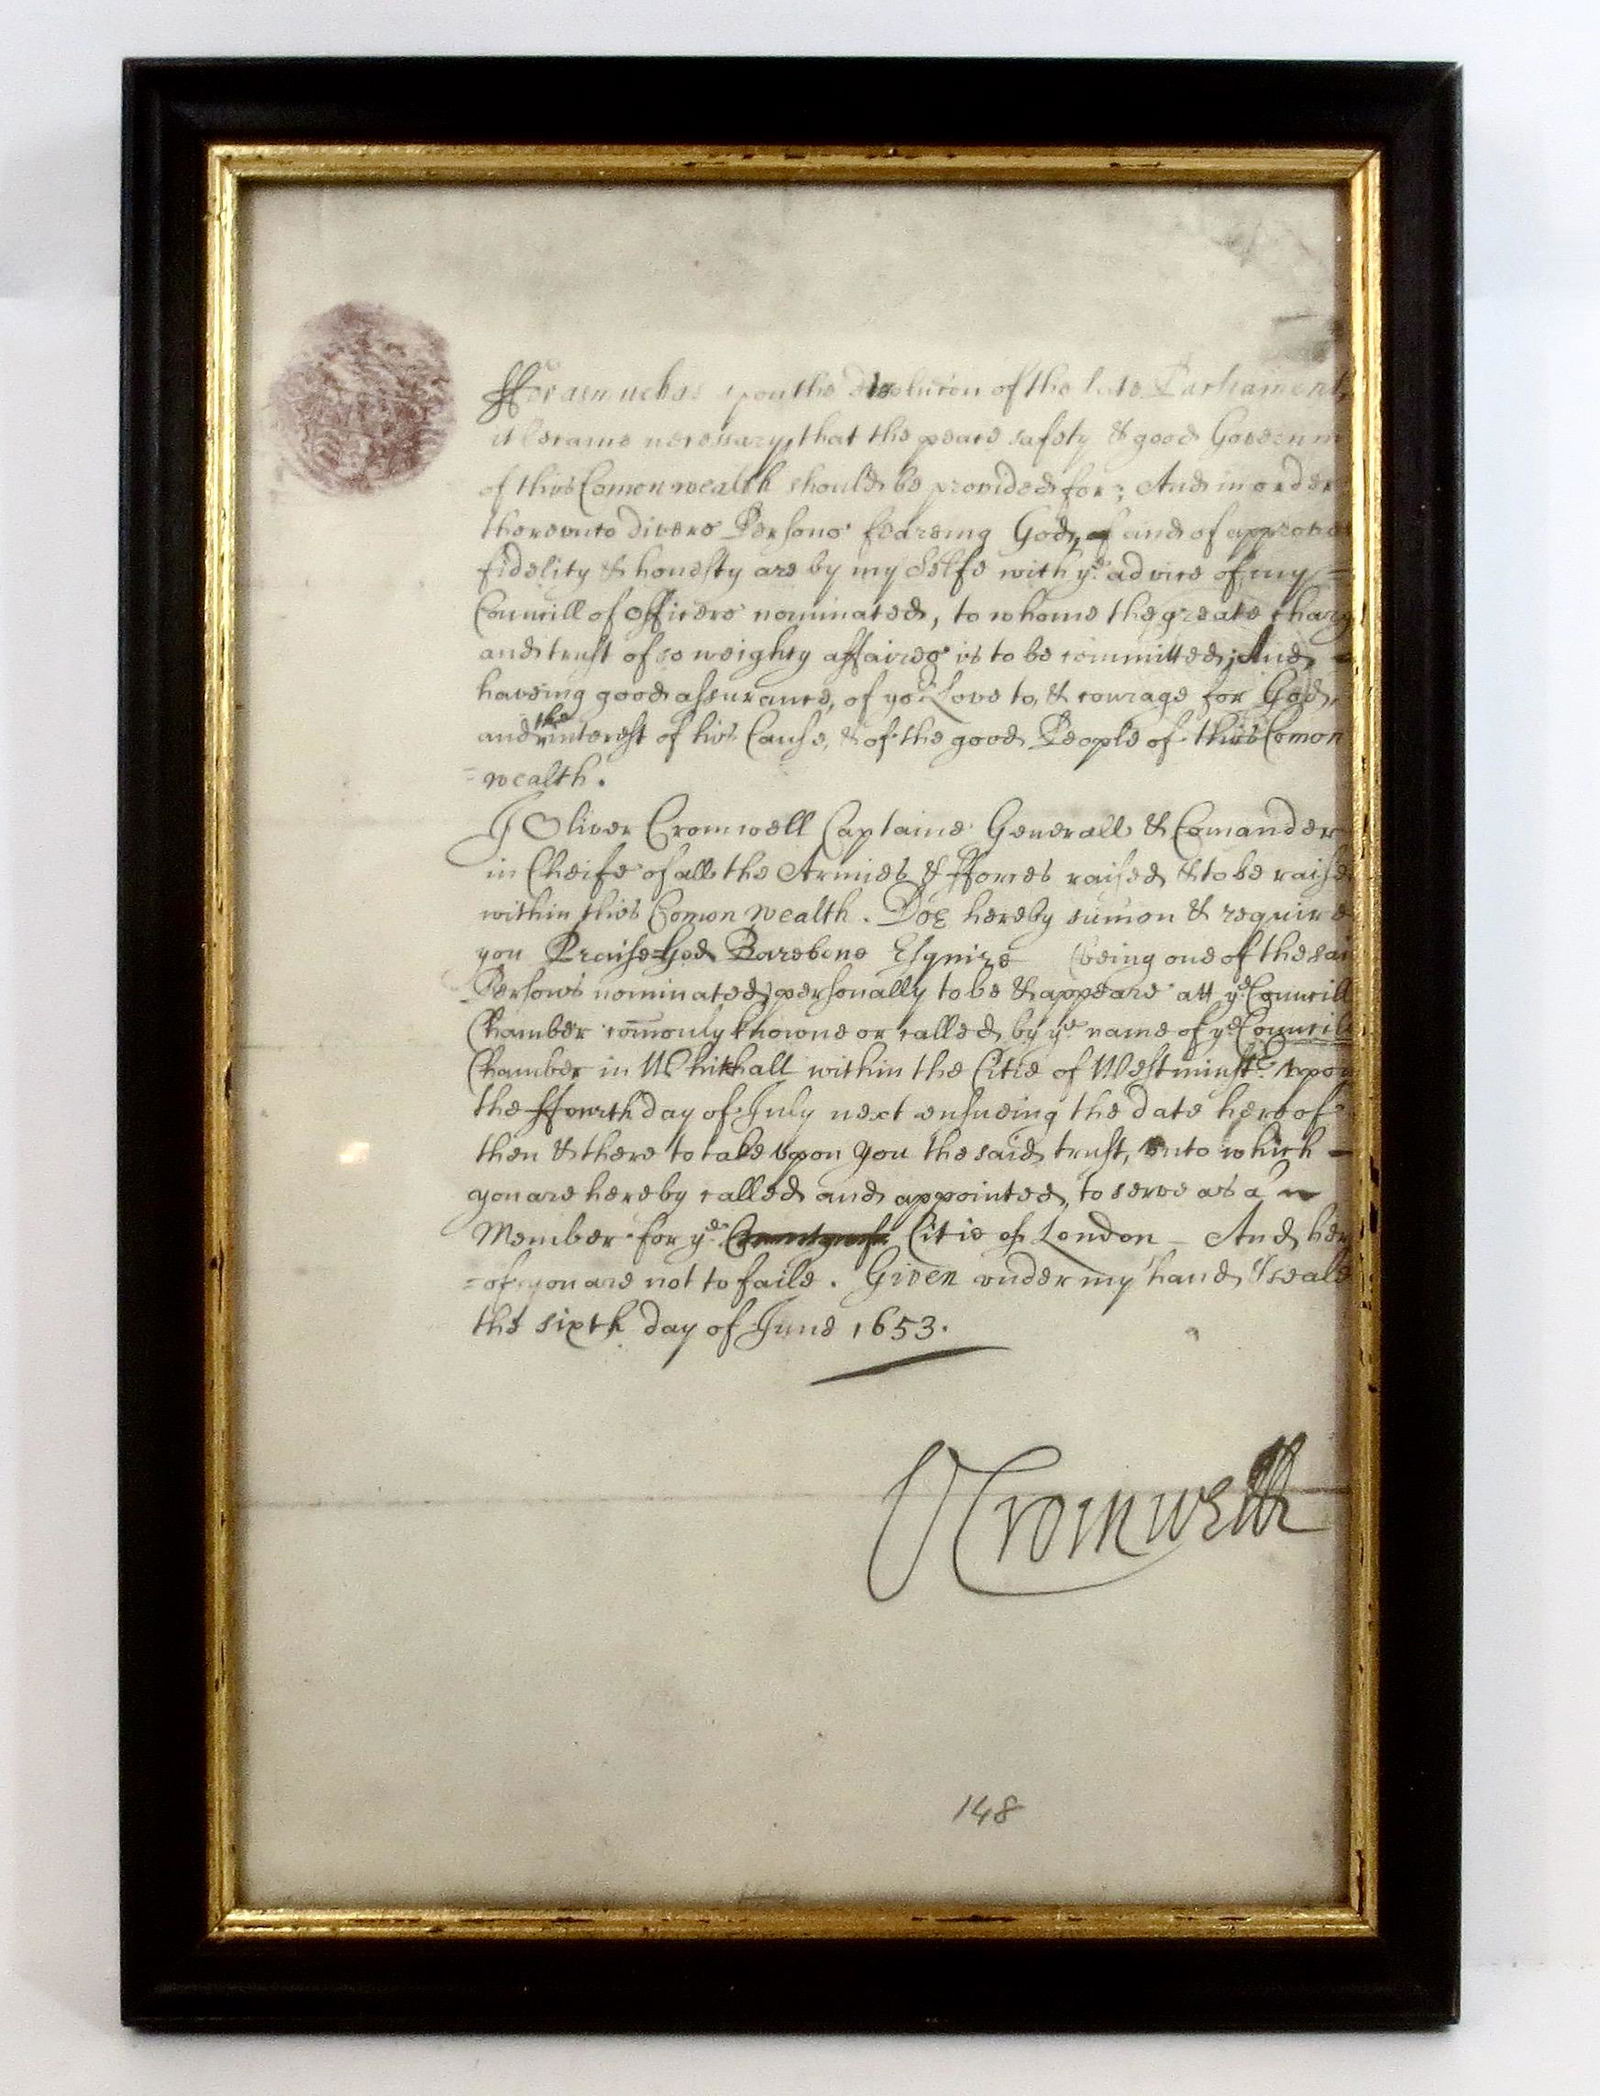 Fforasmuchas upon the disolucon of the late Parliament,
it became necessary, that the peace safety & good Governm
of this Comonwealth should be provided for; And in order
thereunto divers Persons feareing God, and of approve
fidelity & honesty are by my Selfe with ye. advice of my
Councill of Officers nominated, to whome the greate charg
and trust of so weighty affaires is to be committed; And
haveing good assurance, of yor. Love to, & courage for God,
and the interest of his Cause, & of the good People of this Comon
=wealth.
I Oliver Cromwell Captaine Generall & Comander
in Cheife of all the Armies & fforces raised, & to be raise
within this Comonwealth. Doe hereby sumon & require
you Praise-God Barebone Esquire (being one of the sai
Persons nominated) personally to be & appeare att ye. Councill
Chamber comonly knowne or called by ye. name of ye. Councill
Chamber in Whithall within the Citie of Westminstr. upon
the ffourth day of July next ensueing the date hereof
then & there to take upon you the said trust, unto which
you are hereby called and appointed, to serve as a
Member for ye. Citie of London – And her
=of you are not to faile. Given under my hand, & seale
the sixth day of June 1653.
O Cromwell
148